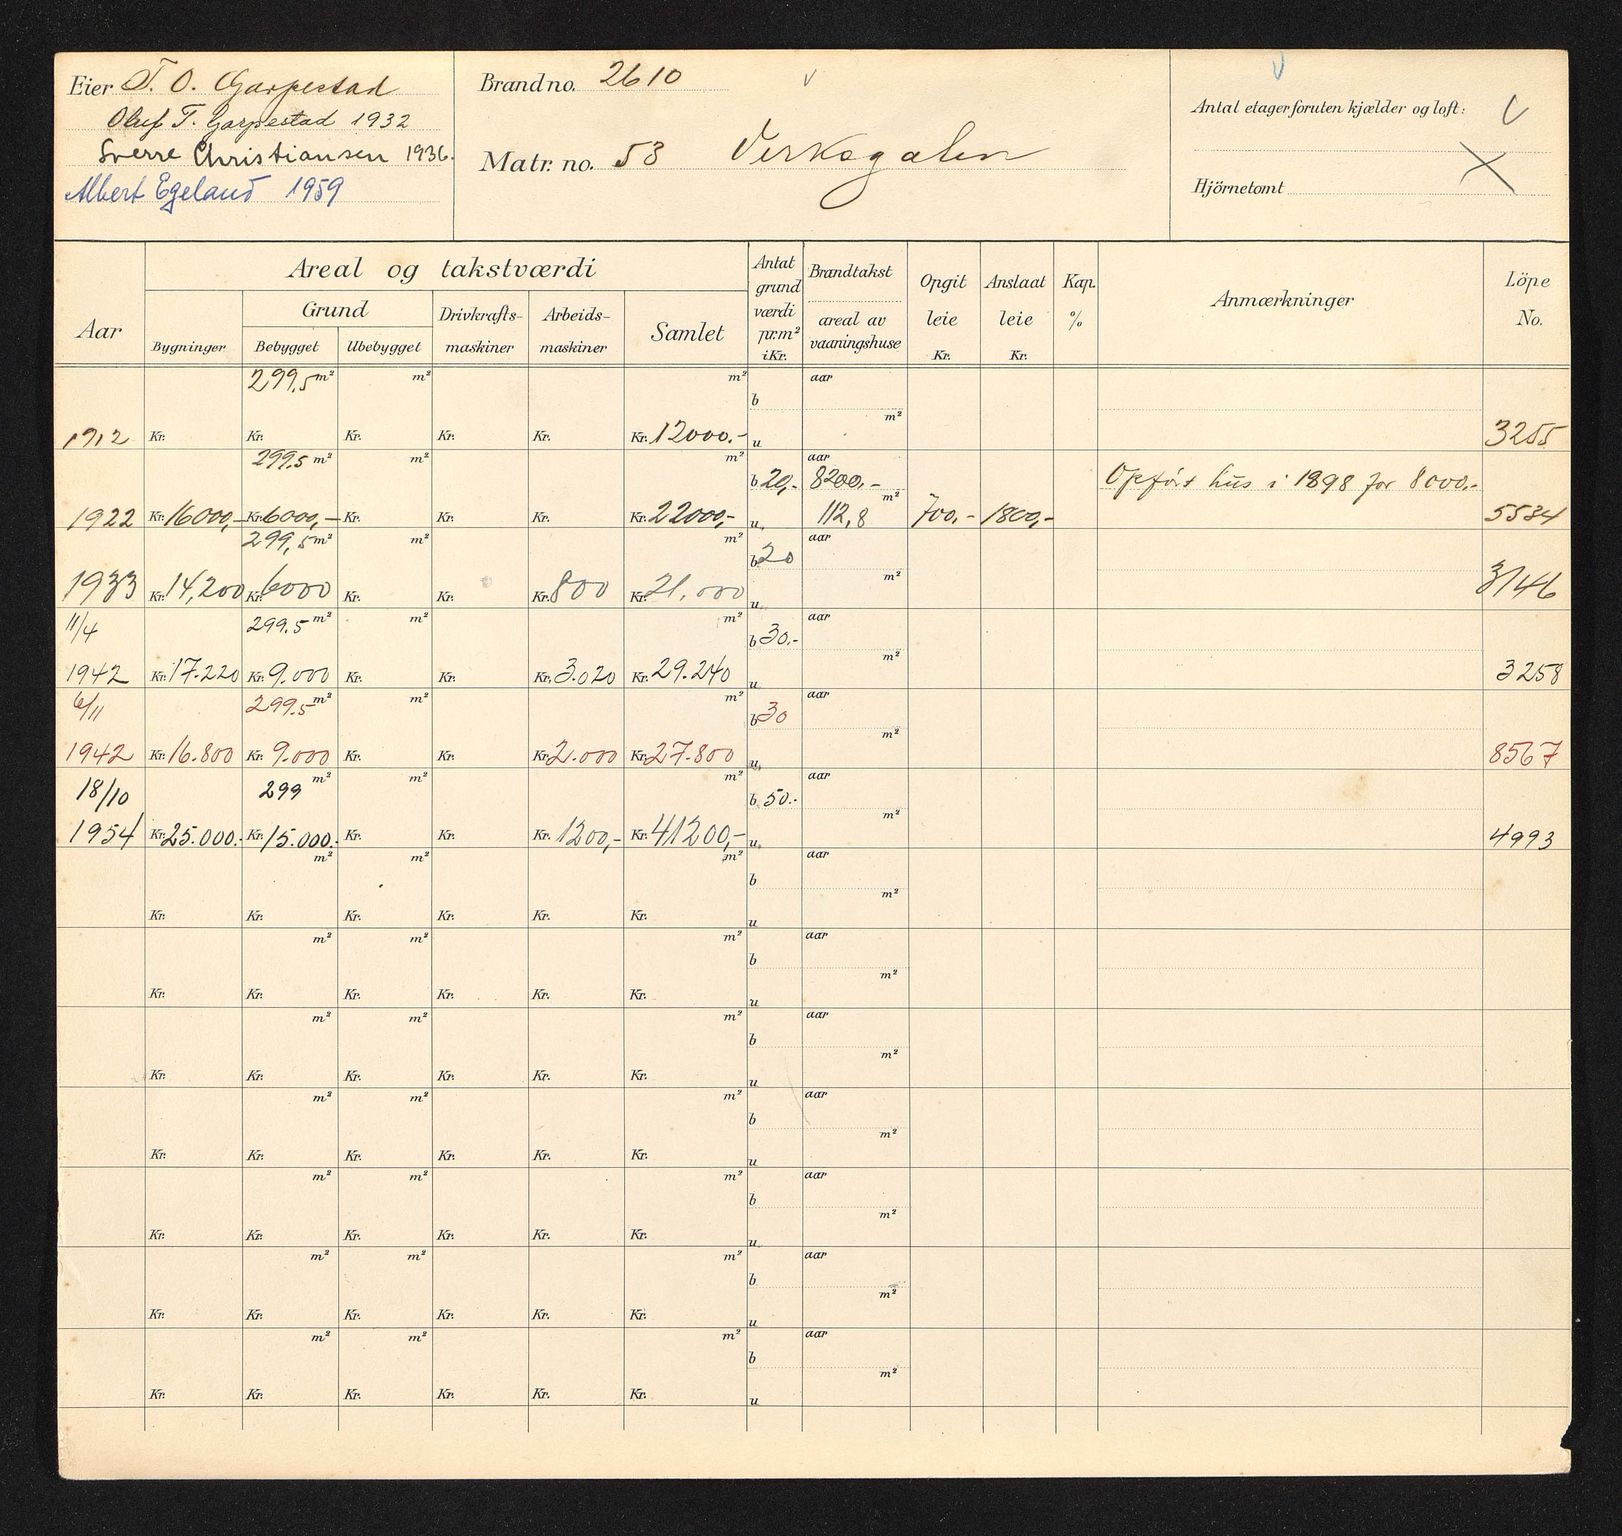 Eier T. O. Garpestad
Oluf T. Garpestad 1932
Sverre Christiansen 1936.
Albert Egeland 1959
Brandno. 2610
Matr. no. 53 Verksgaten
Antal etager foruten kjælder og loft:
Hjörnetomt
Aar
Areal og takstværdi
Grund
Bygninger
Bebygget
Ubebygget
Drivkrafts-
maskiner
Arbeids-
maskiner
Samlet
Antat
grund
værdi
pr. m²
i Kr.
Brandtakst
areal av
vaaningshuse
Opgit
leie
Kr.
Anslaat
leie
Kr.
Kap.
%
Anmærkninger
Löpe
No.
299,5 m² m² m² aar
b
m²
1912 Kr. Kr. Kr. Kr. Kr. Kr. 12000.- u 3255
299,5 m² m² m² aar
b 20,- 8200,- Opført hus i 1898 for 8000.-
m²
1922 Kr. 16000,- Kr. 6000,- Kr. Kr. Kr. Kr. 22000,- u 112,8 700,- 1800,- 5534
299,5 m² m² m² aar
b 20
m²
1933 Kr. 14,200 Kr. 6000 Kr. Kr. Kr. 800 Kr. 21,000 u 3146
11/4 299.5 m² m² m² aar
b 30.-
m²
1942 Kr. 17.220 Kr. 9.000 Kr. Kr. Kr. 3.020 Kr. 29.240 u 3258
6/11 299.5 m² m² m² aar
b 30
m²
1942 Kr. 16.800 Kr. 9.000 Kr. Kr. Kr. 2.000 Kr. 27.800 u 8567
18/10 299 m² m² m² aar
b 50.-
m²
1954 Kr. 25.000.- Kr. 15.000.- Kr. Kr. Kr. 1200,- Kr. 41200,- u 4993
m² m² m² aar
b
m²
Kr. Kr. Kr. Kr. Kr. Kr. u
m² m² m² aar
b
m²
Kr. Kr. Kr. Kr. Kr. Kr. u
m² m² m² aar
b
m²
Kr. Kr. Kr. Kr. Kr. Kr. u
m² m² m² aar
b
m²
Kr. Kr. Kr. Kr. Kr. Kr. u
m² m² m² aar
b
m²
Kr. Kr. Kr. Kr. Kr. Kr. u
m² m² m² aar
b
m²
Kr. Kr. Kr. Kr. Kr. Kr. u
m² m² m² aar
b
m²
Kr. Kr. Kr. Kr. Kr. Kr. u